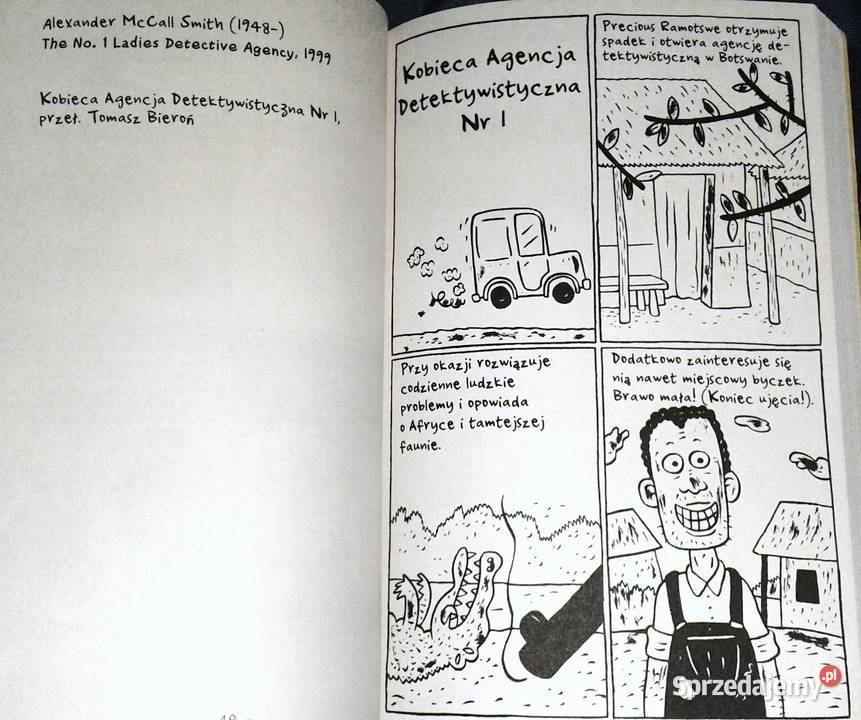 Alexander McCall Smith (1948-)
The No. 1 Ladies Detective Agency, 1999
Kobieca Agencja Detektywistyczna Nr 1,
przeł. Tomasz Bieroń
Kobieca Agencja
Detektywistyczna
Nr 1
Precious Ramotswe otrzymuje
spadek i otwiera agencję de-
tektywistyczną w Botswanie.
Przy okazji rozwiązuje
codzienne ludzkie
problemy i opowiada
o Afryce i tamtejszej
faunie.
Dodatkowo zainteresuje się
nią nawet miejscowy byczek.
Brawo mała! (Koniec ujęcia!).
Sprzedajemy.pl